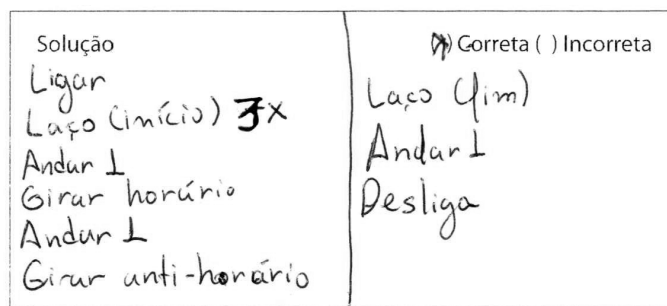 Solução
Ligar
Laço (início) 3x
Andar 1
Girar horário
Andar 1
Girar anti-horário
(X) Correta ( ) Incorreta
Laço (fim)
Andar 1
Desliga